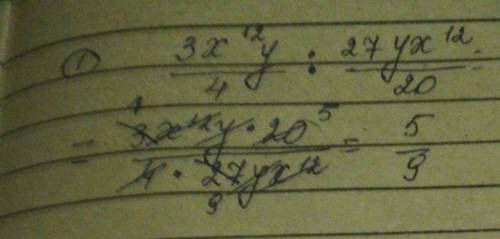 ① 3x¹²y/4 : 27yx¹²/20 =
= 3x¹²y·20/4·27yx¹² = 5/9
1 5
9